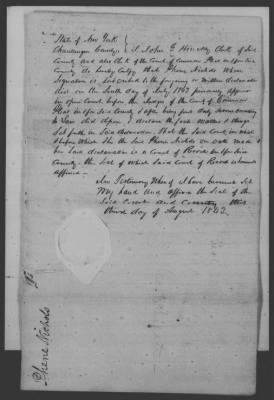 State of New York
Chautauque County } I John G Hinckley Clerk of Said
County and also Clerk of the Court of Common Pleas in & for said
County do hereby Certify that Phene Nichols Whose
Signature is Subscribed to the foregoing or written declaration
did on the tenth day of July 1843 personally appear
in open Court before the Judges of the Court of Common
Pleas in & for said County & after being first duly sworn according
to Law did depose & declare the facts matters & things
Set forth in said declaration that the said Court in which
& before Which She the Said Phene Nichols on oath made
her Said declaration is a Court of Record in & for said
County. the Seal of which Said Court of Record is hereunto
affixed
In Testimony Whereof I have hereunto Set
My hand and affixed the Seal of the
Said Court and County this
third day of August 1843.
Phene Nichols